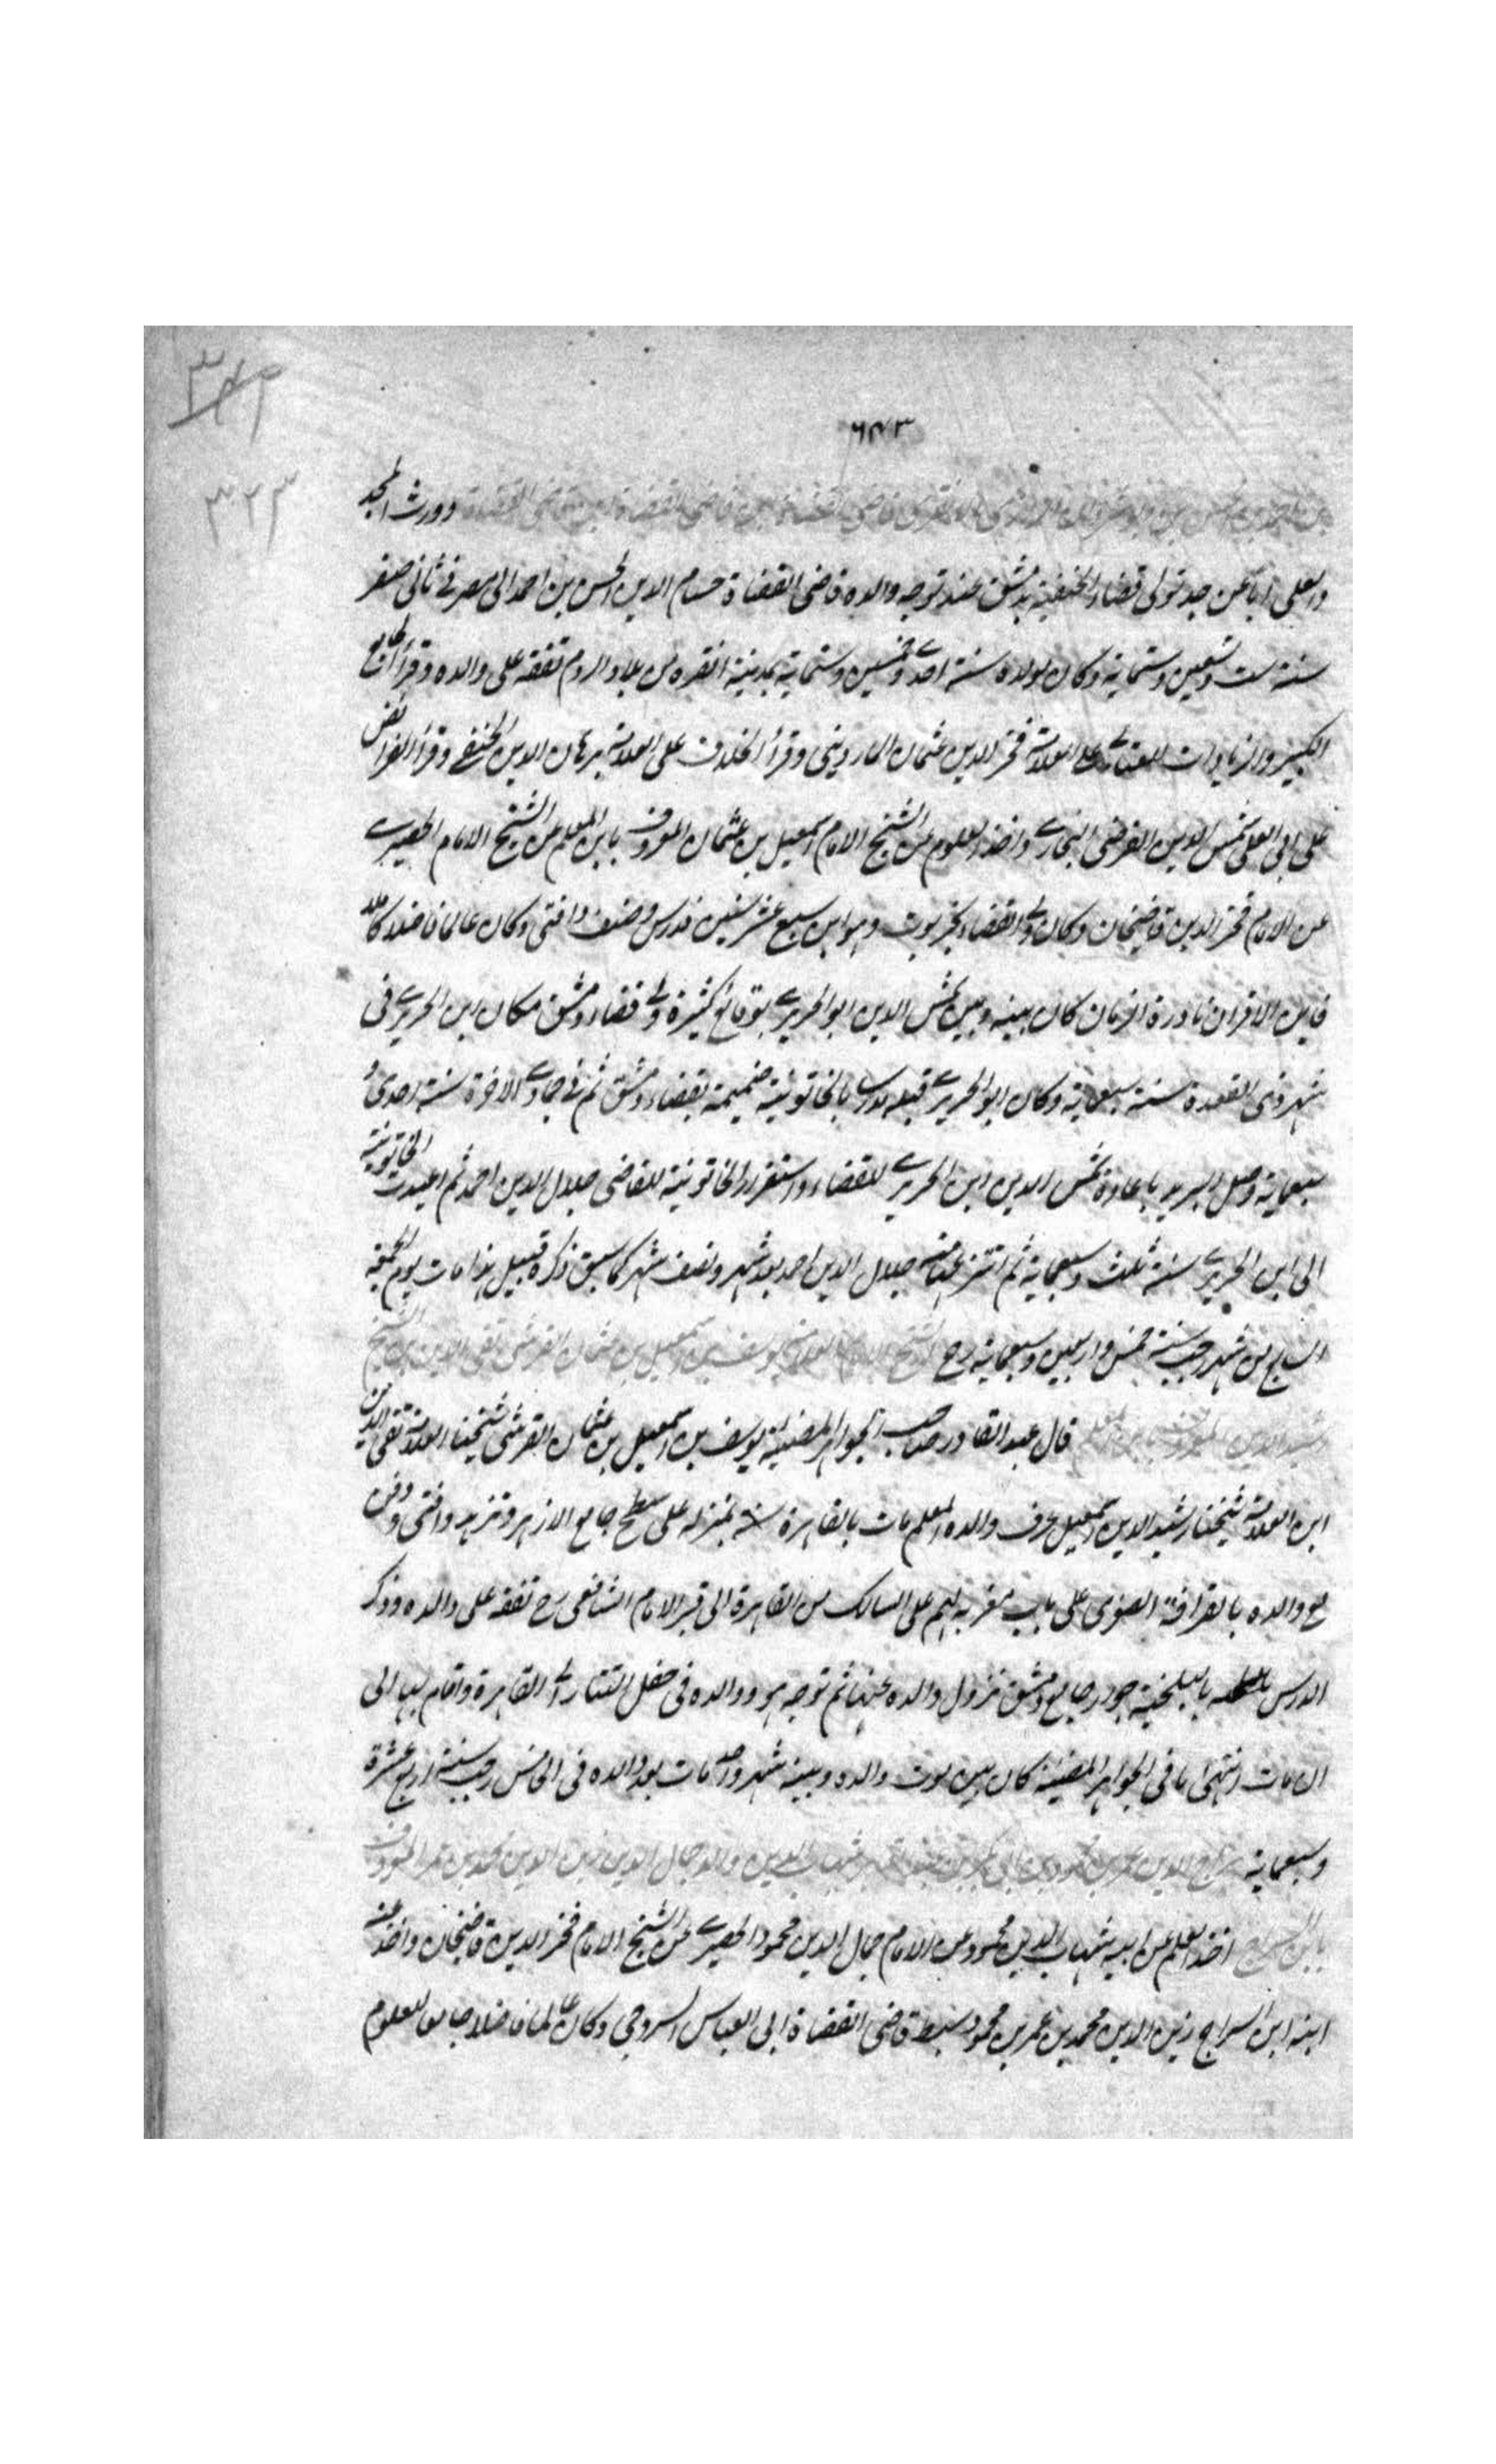 ٦٤٣
٣٢٣
قاضى القضاة قاضى القضاة وورث المجد
والعلى أبا عن جد تولى قضاء الحنفية بدمشق عند توجه والده قاضى القضاة حسام الدين الحسن بن احمد الى مصر فى ثانى صفر
سنة ست وتسعين وستماية وكان مولده سنة احدى وخمسين وستماية بمدينة انقره من بلاد الروم تفقه على والده وقرأ الجامع
الكبير والزيادات للعتابى على العلامة فخر الدين عثمان الماردينى وقرأ الخلاف على العلامة برهان الدين الحنفى وقرأ الفرائض
على ابى العلى شمس الدين الفرضى البخارى واخذ العلوم عن الشيخ الامام اسمعيل بن عثمان المعروف بابن المعلم عن الشيخ الامام الحصيرى
عن الامام فخر الدين قاضيخان وكان ولى القضاء بخرتبرت وهو ابن سبع عشر سنين فدرس وصنف وافتى وكان عالما فاضلا كاملا
فايق الاقران نادرة الزمان كان بينه وبين شمس الدين ابو الحريرى بوقائع كثيرة ولى قضاء دمشق مكان ابن الحريرى فى
شهر ذى القعدة سنة سبعماية وكان ابو الحريرى قبله مدرسا بالخاتونية ضميمة بقضاء دمشق ثم فى جمادى الاخرة سنة احدى و
سبعماية وصل البريد باعادة شمس الدين ابن الحريرى للقضاء واستقرار الخاتونية للقاضى جلال الدين احمد ثم اعيدت الخاتونية
الى ابن الحريرى سنة ثلث وسبعماية ثم انتزعها منه جلال الدين احمد بعد شهر ونصف شهر كما سبق ذكره قبيل هذا مات يوم الجمعة
السابع من شهر رجب سنة خمس واربعين وسبعماية رح الشيخ الامام العلامة يوسف بن اسمعيل بن عثمان القرشى تقى الدين بن الشيخ
رشيد الدين المعروف بابن المعلم قال عبد القادر صاحب الجواهر المضيئة يوسف بن اسمعيل بن عثمان القرشى شيخنا العلامة تقى الدين
ابن العلامة شيخنا رشيد الدين اسمعيل عرف والده المعلم مات بالقاهرة سنة بمنزله على سطح جامع الازهر وتزهد وافتى ودفن
مع والده بالقرافة الصغرى على باب مغربه لهم على السالك من القاهرة الى قبر الامام الشافعى رح تفقه على والده وذكر
الدرس بالبلخية جوار جامع دمشق نزول والده عنها ثم توجه هو ووالده فى جفل التتار الى القاهرة واقام بها الى
ان مات انتهى ما فى الجواهر المضيئة كان بين موت والده وبينه شهر واحد مات بعد والده فى الخامس رجب سنة اربع عشرة
وسبعماية سراج الدين عمر بن محمود بن ابى بكر شهاب الدين والد جمال الدين زين الدين محمد بن عمر المعروف
بابن السراج اخذ العلم عن ابيه شهاب الدين محمود عن الامام جمال الدين محمود الحصيرى عن الشيخ الامام فخر الدين قاضيخان واخذ عنه
ابنه ابن السراج زين الدين محمد بن عمر بن محمود سبط قاضى القضاة ابى العباس السروجى وكان عالما فاضلا جامعا للعلوم